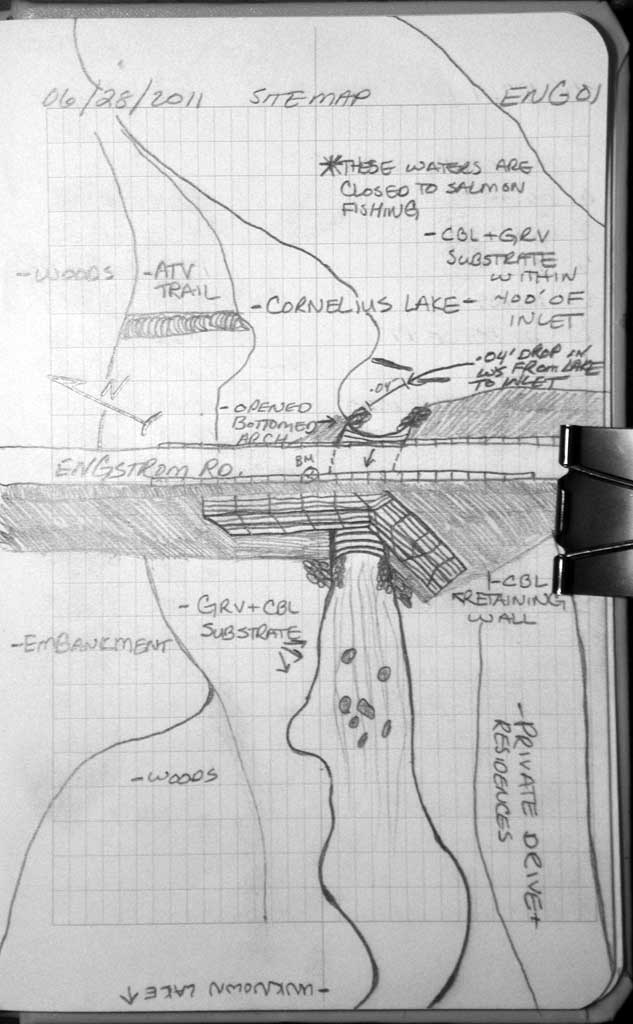 06/28/2011 SITEMAP ENG01
*THESE WATERS ARE
CLOSED TO SALMON
FISHING
-CBL+GRV
SUBSTRATE
WITHIN
~400' OF
INLET
-WOODS
-ATV
TRAIL
-CORNELIUS LAKE-
.04' DROP IN
WS FROM LAKE
TO INLET
.04'
N
-OPENED
BOTTOMED
ARCH
ENGSTROM RD.
BM
-GRV+CBL
SUBSTRATE
-CBL
RETAINING
WALL
-EMBANKMENT
-WOODS
-PRIVATE DRIVE+
RESIDENCES
-UNKNOWN LAKE↑